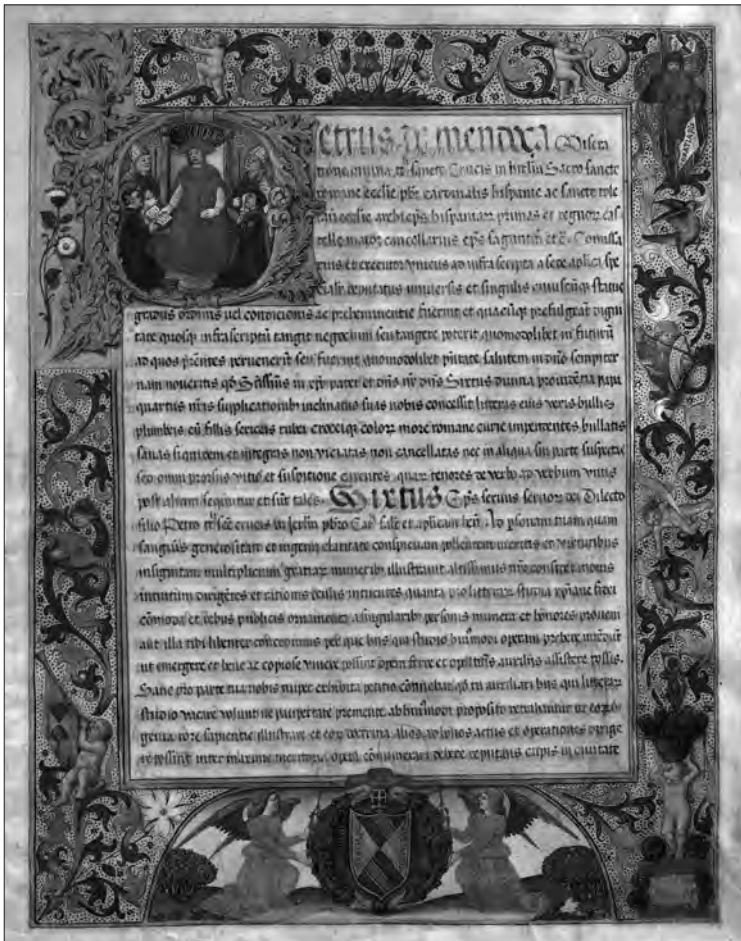 etrus de mendoça Misera
tione divina tt sancte Crucis in hierlm Sacro sancte
romane ecclie pbr cardinalis hispanie ac sancte tole
tan ecclie archieps hispaniar primas et regnor cas
telle maior cancellarius eps sagantin et c Comissa
rius et executor unicus ad infra scripta a sede aplica spe
cialr deputatus universis et singulis cuiuscuq status
gradus ordinis vel condicionis ac preheminentie fuerint et quacuq prefulgeat digni
tate quosq infrascriptu tangit negocium seu tangere poterit quomodolibet in futuru
ad quos pntes pervenerit seu fuerint quomodolibet pntate salutem in dno sempiter
nam noveritis qd Stissimus in xpo pater et dns nr dns Sixtus divina providentia papa
quartus nris supplicationib inclinatus suas nobis concessit litteras eius veris bullis
plumbeis cu fillis sericeis rubei croceiq color more romane curie impendentes bullatis
sanas siquidem et integras non viciatas non cancellatas nec in aliqua sui parte suspectas
sed omni prorsus vitio et suspitione carentes quar tenores de verbo ad verbum unius
post alteram sequuntur et sut tales Sixtus Eps servus servor dei Dilecto
filio Petro tt sce crucis in Jerlm pbro Car salt et aplicam ben Ad psonam tuam quam
sanguis generositate et ingenii claritate conspicuam pollentem meritis et virtutibus
insignitam multiplicium gratiar muneribus illustravit altissimus nre considerationis
intuitum dirigetes et rationis oculis intuentes quanta pro litterar studia xpiane fidei
comoda et rebus publicis ornamenta a singularib personis munera et honores proveni
ant illa tibi libenter concedimus per que hiis qui studio huiusmodi operam prebere
ut emergere et bene ac copiose vivere possint opem ferre et oportunis auxiliis assistere possis
Sane pro parte tua nobis nuper exhibita petitio continebat qd tu auxiliari hiis qui litterar
studio vacare volunt ne paupertate premente ab huiusmodi proposito retrahantur ut eor
genia rore sapientie illustrare et eor doctrina alios ad pios actus et operationes dirige
re possint inter maxime meritoria opera connumerari debere reputans cupis in civitate